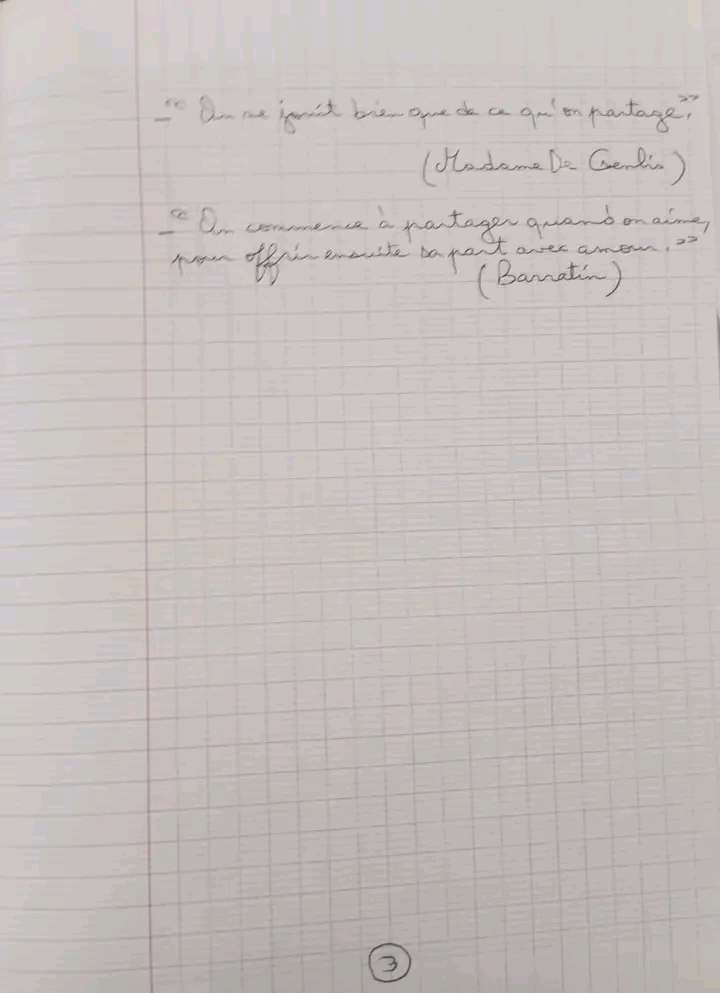 - "On ne jouit bien que de ce qu'on partage".
(Madame De Genlis)
- "On commence à partager quand on aime,
pour offrir ensuite sa part avec amour."
(Barratin)
3